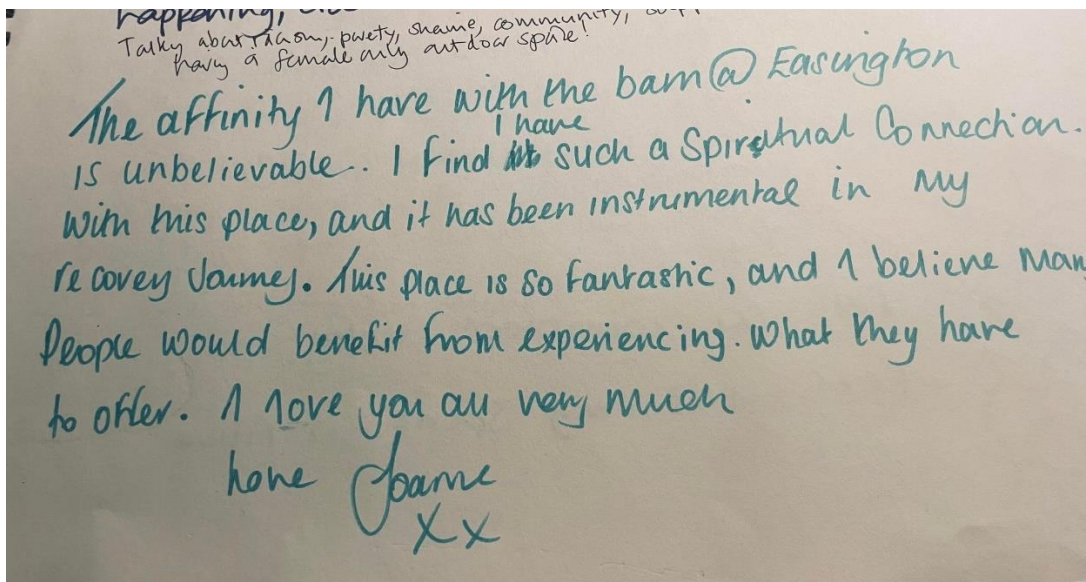 happening,
Talking about trauma, poverty, shame, community,
having a female only outdoor space!
The affinity I have with the barn @ Easington
I have
is unbelievable. I find such a Spiratual Connection.
with this place, and it has been instrumental in My
recovey Journey. This place is so fantastic, and I believe Man
People would benefit from experiencing. What they have
to offer. I love you all very much
love Joanne
xx